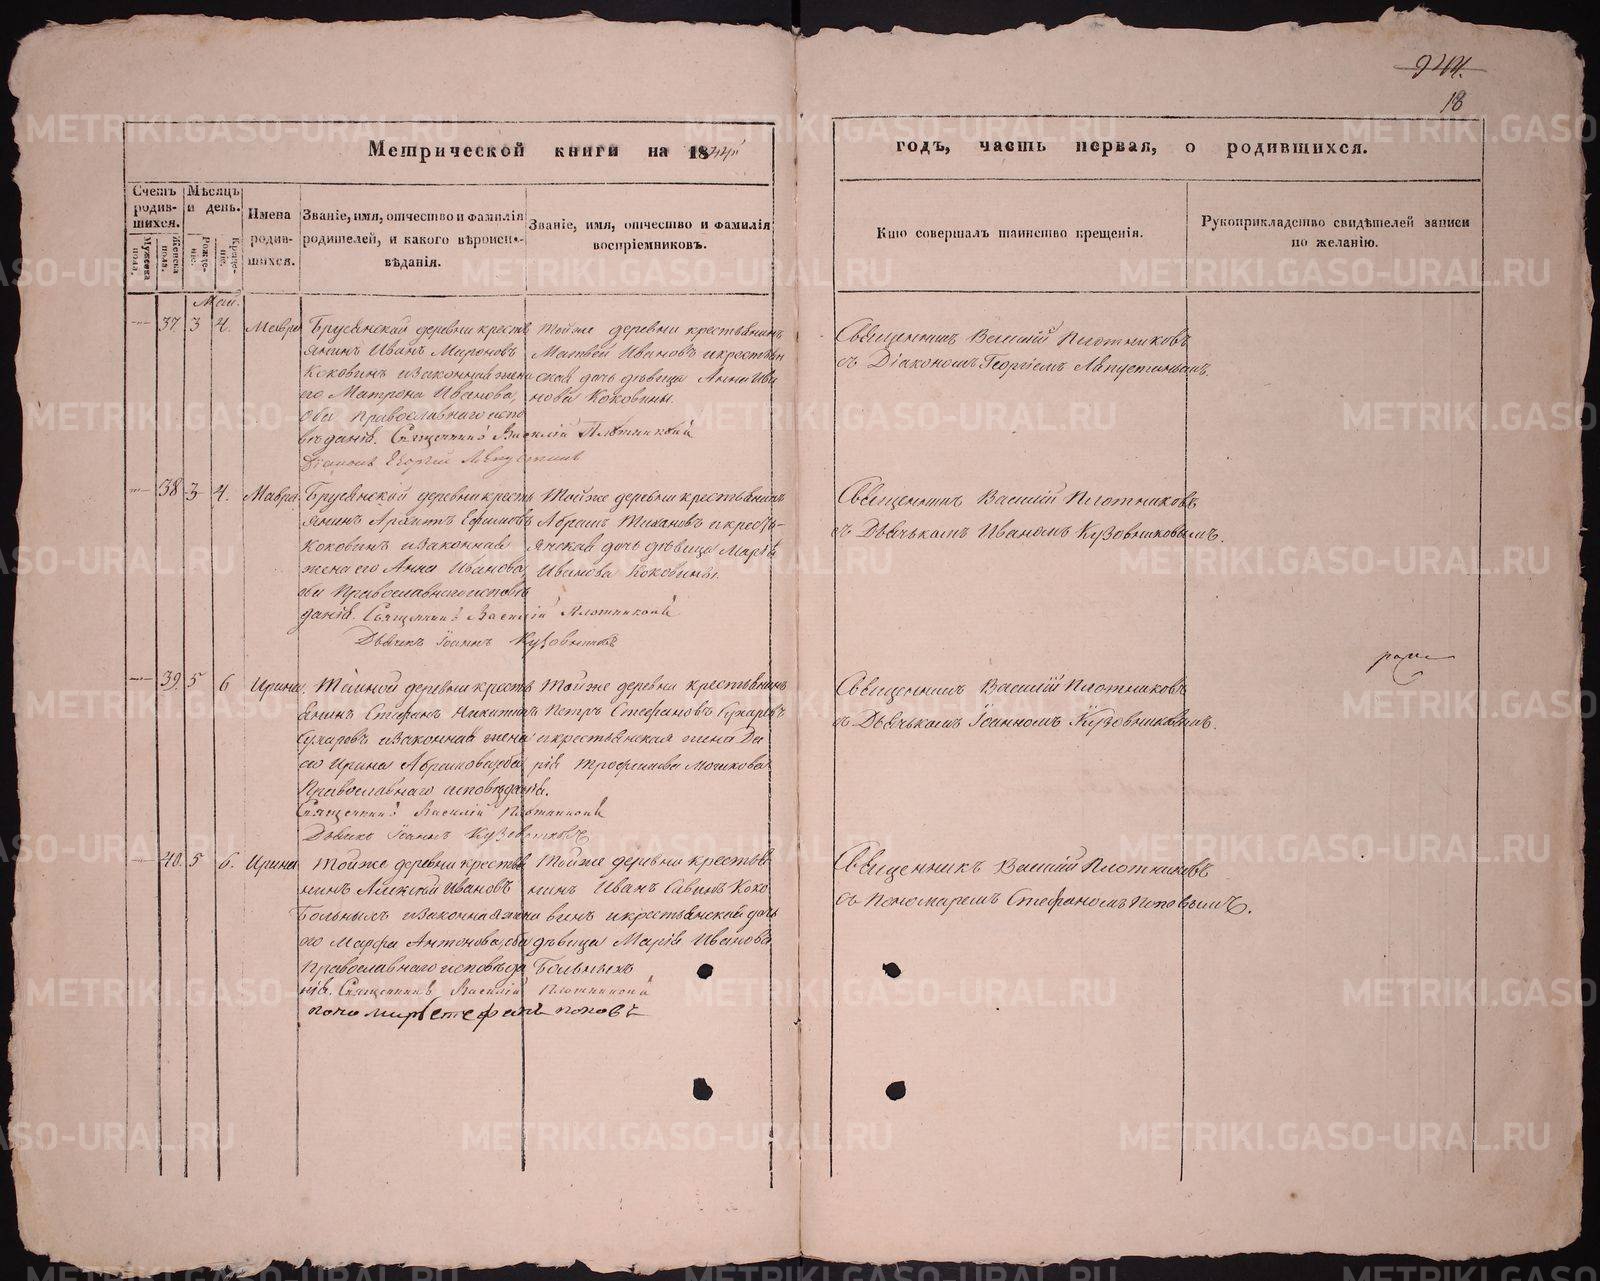 944.
18
Метрической книги на 1844й
годъ, часть первая, о родившихся.
Счетъ родив-шихся.
Мужеска пола.
Женска пола.
Мѣсяцъ и день.
Рожде-ніе.
Креще-ніе.
Имена родив-шихся.
Званіе, имя, отчество и фамилія родителей, и какого вѣроиспо-вѣданія.
Званіе, имя, отчество и фамилія воспріемниковъ.
Кто совершалъ таинство крещенія.
Рукоприкладство свидѣтелей записи по желанію.
Май.
37. 3 4. Мавра
Брусянской деревни кресть
янинъ Иванъ Мироновъ
Коковинъ и законная жена
его Матрона Иванова,
оба православнаго испо
вѣданія. Священникъ Василій Плотниковъ
Діаконъ Георгій Лепустинъ
Тойже деревни крестьянинъ
Матвей Ивановъ и крестьян
ская дочь дѣвица Анна Ива
нова Коковины.
Священникъ Василій Плотниковъ
съ Діакономъ Георгіемъ
38 3 4. Мавра
Брусянской деревни кресть
янинъ Архипъ Ефимовъ
Коковинъ и законная
жена его Анна Иванова,
оба Православнаго исповѣ
данія. Священникъ Василій Плотниковъ
Дьячекъ Іоаннъ Кузовниковъ
Тойже деревни крестьянинъ
Абрамъ Тихановъ и кресть-
янская дочь дѣвица Марія
Иванова Коковины.
Священникъ Василій Плотниковъ
съ Дьячькомъ Иваномъ Кузовниковымъ.
39. 5 6 Ирина.
деревни кресть
янинъ Стефанъ Никитинъ
Сухаревъ и законная жена
его Ирина Абрамова, оба
Православнаго исповѣданія.
Священникъ Василій Плотниковъ
Дьячекъ Іоаннъ Кузовниковъ
Тойже деревни крестьянинъ
Петръ Стефановъ Сухаревъ
и крестьянская жена Да
рія Трофимова
Священникъ Василій Плотниковъ
съ Дьячькомъ Іоанномъ Кузовниковымъ.
40. 5 6. Ирина
Тойже деревни крестья
нинъ Алексѣй Ивановъ
Больныхъ и законная жена
его Марфа Антонова, оба
Православнаго исповѣда
нія. Священникъ Василій Плотниковъ
пономарь Стефанъ Поповъ
Тойже деревни крестья
нинъ Иванъ Савинъ Коко
винъ и крестьянская дочь
дѣвица Марія Иванова
Больныхъ
Священникъ Василій Плотниковъ
съ Пономаремъ Стефаномъ Поповымъ.
METRIKI.GASO-URAL.RU